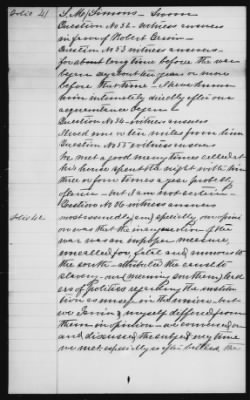 Folio 41 S. M. Simons - Sworn
Question No 52 - witness answers
in favor of Robert Erwin -
Question No 53 witness answers -
for about long time before the war
began say about ten years or more
before that time - I have known
him intimately directly after our
acquaintance began -
Question No 54 - witness answers
lived or ten miles from him
Question No 55 witness answers
We met a good many times called at
his house spent the night with him
three or four times a year probably
oftener - but I am not certain -
Question No 56 witness answers
Folio 42 most soundly and especially in opinion
was that the inauguration of the
war was an improper measure,
uncalled for, fatal and ruinous to
the south -
slavery - we (meaning southern) lead
ers of politics regarding the institu
tion as much in the union - but
we Ervin & myself differed from
them in opinion - we conversed on
and discussed the subject every time
we met especially so after the